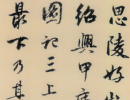 思陵好
紹興甲
國記三上
最下乃其